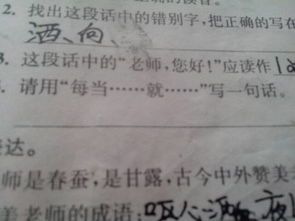 2. 找出这段话中的错别字,把正确的写在
洒、向、
3. 这段话中的“老师,您好!”应读作
. 请用“每当……就……”写一句话。
达。
师是春蚕,是甘露,古今中外赞美
美老师的成语:呕心沥血